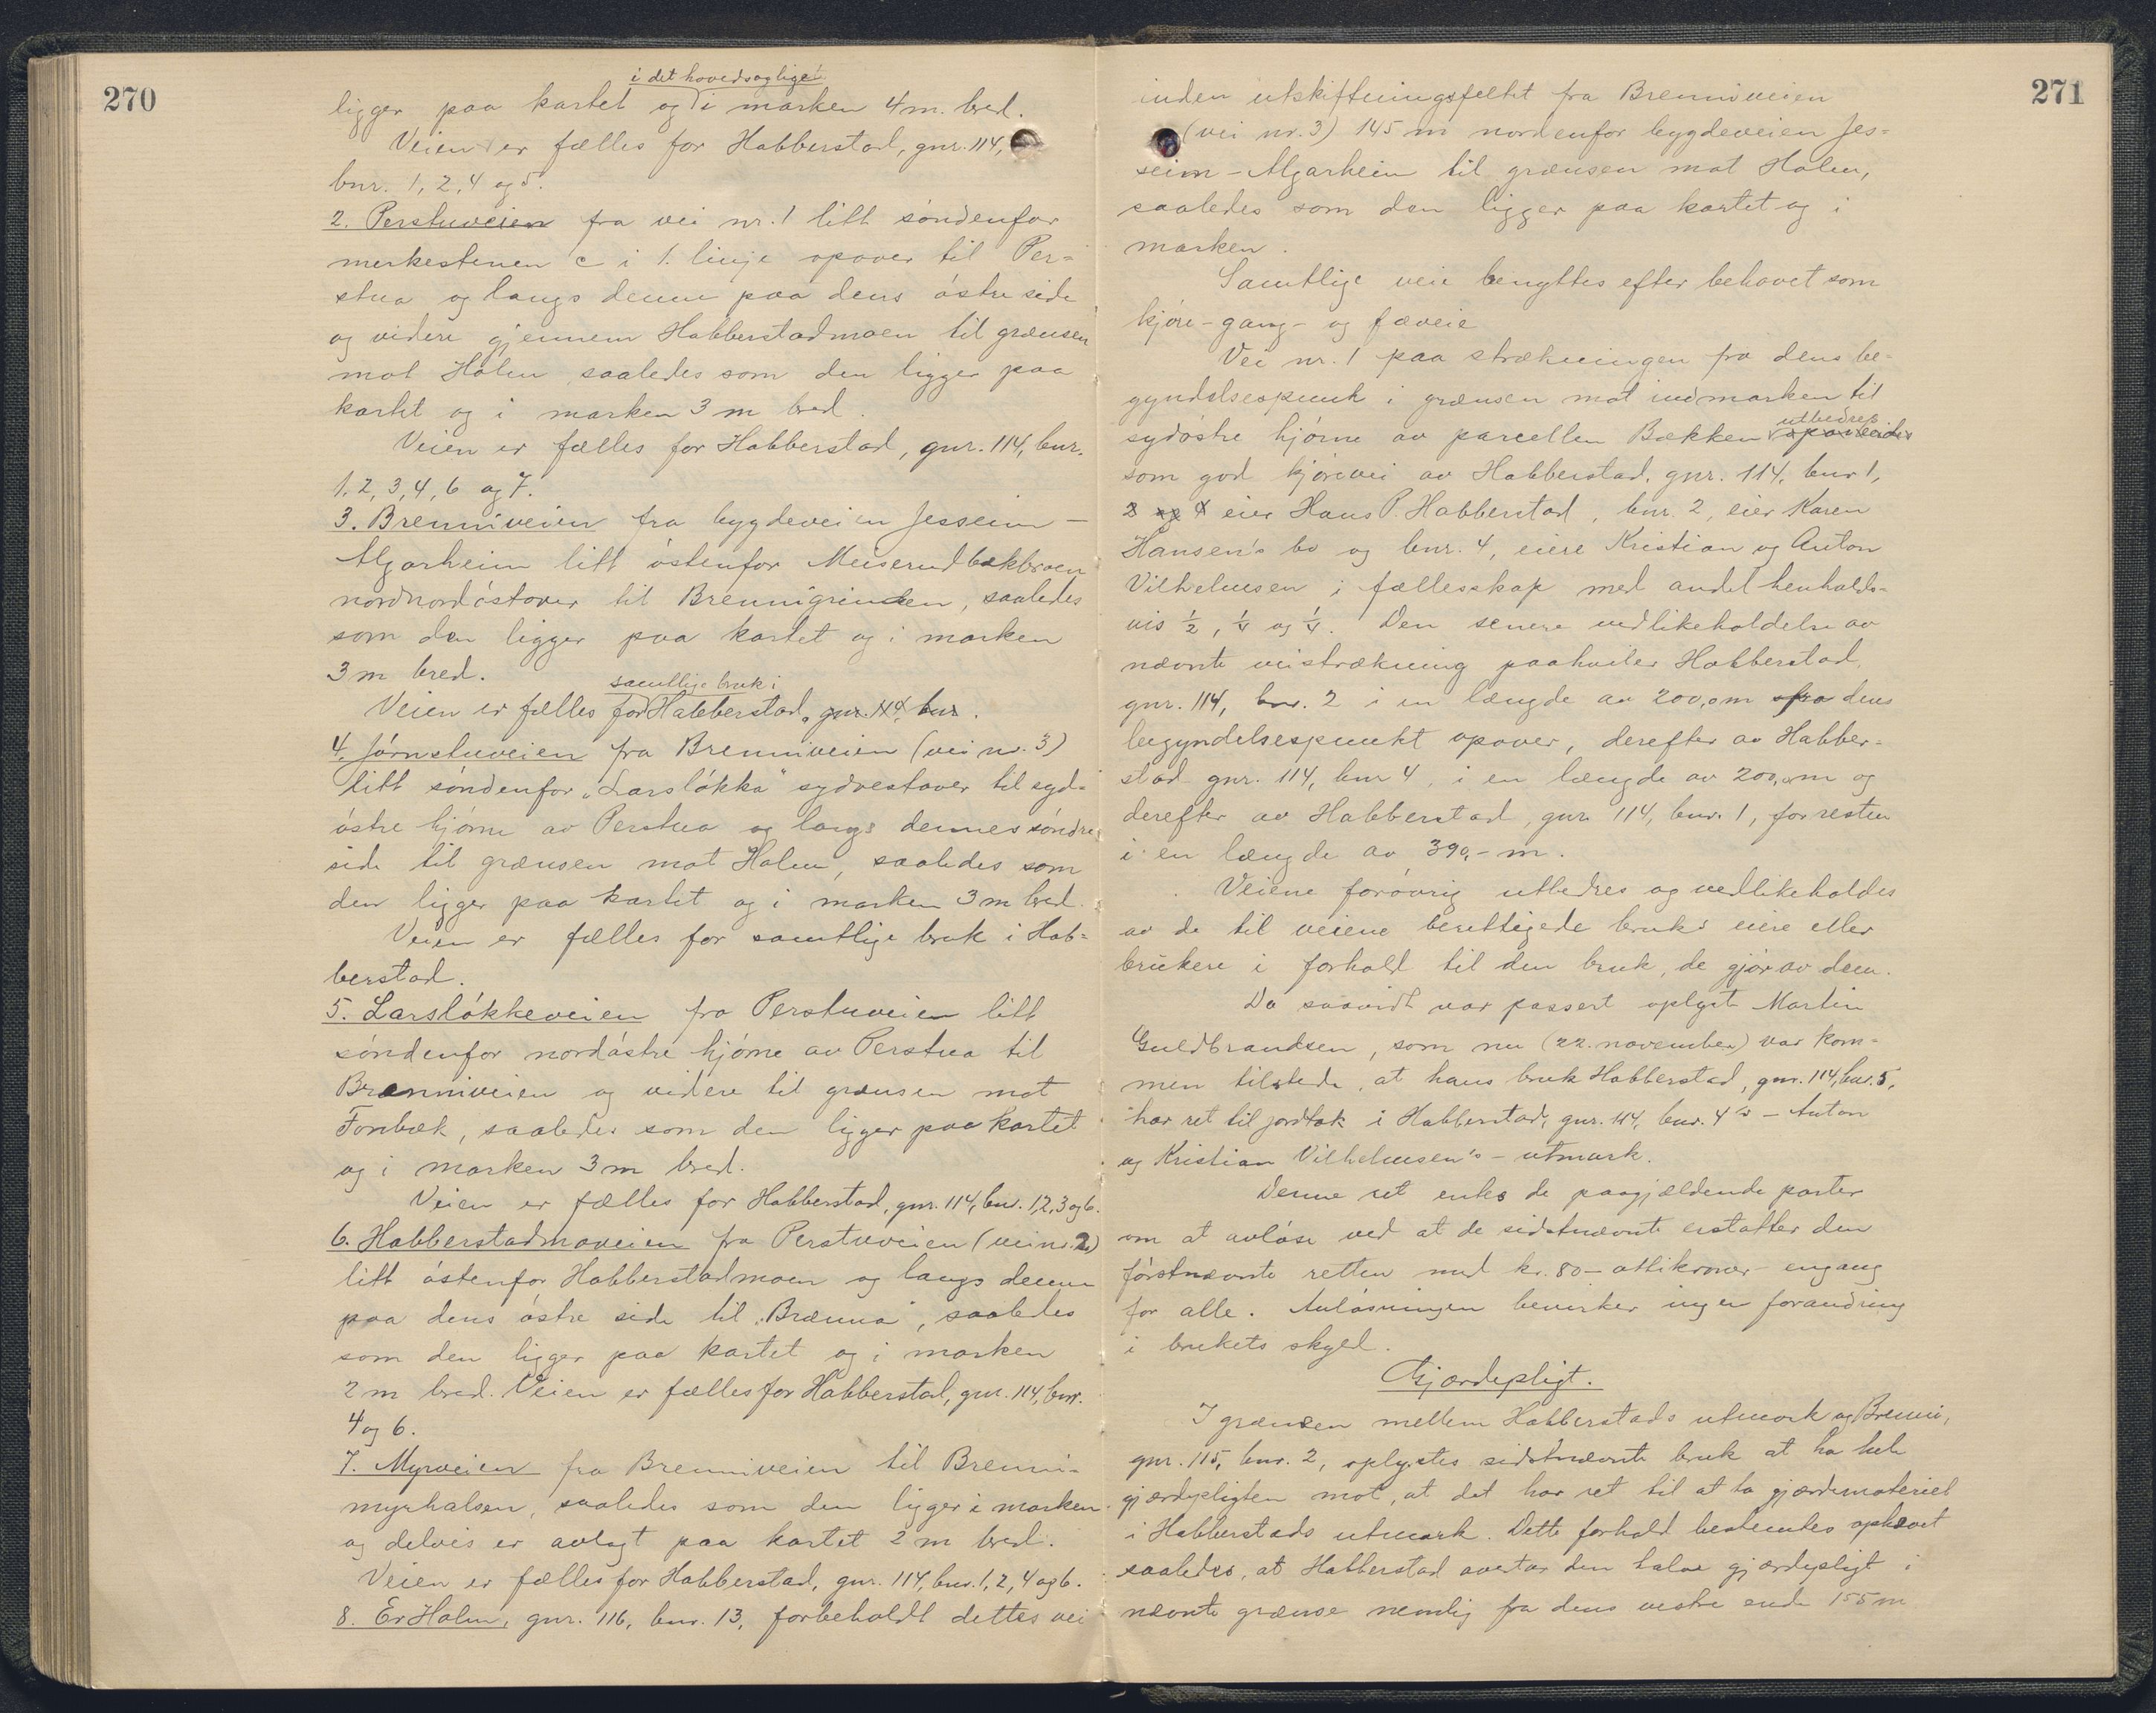 270
i det hovedsaglige
ligger paa kartet og i marken 4 m. bred.
Veien er fælles for Habberstad, gnr. 114,
bnr. 1, 2, 4 og 5.
2. Perstuveien fra vei nr. 1 litt söndenfor
merkestenen c i 1. linje opover til Per-
stua og langs denne paa dens östre side
og videre gjennem Habberstadmoen til grænsen
mot Holm saaledes som den ligger paa
kartet og i marken 3 m bred.
Veien er fælles for Habberstad, gnr. 114, bnr.
1, 2, 3, 4, 6 og 7.
3. Brenniveien fra bygdeveien Jesseim -
Algarheim litt östenfor Meiserudbækbroen
nordnordöstover til Brennigrinden, saaledes
som den ligger paa kartet og i marken
3 m bred.
samtlige bruk i
Veien er fælles for Habberstad, gnr. 114, bnr.
4. Jörnstuveien fra Brenniveien (vei nr. 3)
litt söndenfor „Larslökka" sydvestover til syd-
östre hjörne av Perstua og langs dennes söndre
side til grænsen mot Holm, saaledes som
den ligger paa kartet og i marken 3 m bred.
Veien er fælles for samtlige bruk i Hab-
berstad.
5. Larslökkeveien fra Perstuveien litt
söndenfor nordöstre hjörne av Perstua til
Brænniveien og videre til grænsen mot
Fonbæk, saaledes som den ligger paa kartet
og i marken 3 m bred.
Veien er fælles for Habberstad, gnr. 114, bnr. 1, 2, 3 og 6.
6. Habberstadmoveien fra Perstuveien (vei nr. 2)
litt östenfor Habberstadmoen og langs denne
paa dens östre side til „Brænna", saaledes
som den ligger paa kartet og i marken
2 m bred. Veien er fælles for Habberstad, gnr. 114, bnr.
4 og 6.
7. Myrveien fra Brenniveien til Brenni-
myrhalsen, saaledes som den ligger i marken
og delvis er avlagt paa kartet 2 m bred.
Veien er fælles for Habberstad, gnr. 114, bnr. 1, 2, 4 og 6.
8. Er Holm, gnr. 116, bnr. 13, forbeholdt dettes vei
271
inden utskiftningsfeltet fra Brenniveien
(vei nr. 3) 145 m nordenfor bygdeveien Jes-
seim - Algarheim til grænsen mot Holm,
saaledes som den ligger paa kartet og i
marken.
Samtlige veie benyttes efter behovet som
kjöre- gang- og fæveie
Vei nr. 1 paa strækningen fra dens be-
gyndelsespunk i grænsen mot indmarken til
utbedres
sydöstre hjörne av parcellen Bækken oparbeides
som god kjörevei av Habberstad, gnr. 114, bnr 1,
2 og 4 eier Hans P. Habberstad, bnr. 2, eier Karen
Hansen's bo og bnr. 4, eiere Kristian og Anton
Vilhelmsen i fællesskap med andel henholds-
vis ½, ¼ og ¼. Den senere vedlikeholdelse av
nævnte veistrækning paahviler Habberstad,
gnr. 114, bnr. 2 i en længde av 200,0 m fra dens
begyndelsespunkt opover, derefter av Habber-
stad gnr. 114, bnr 4, i en længde av 200,0 m og
derefter av Habberstad, gnr. 114, bnr. 1, for resten
i en længde av 390,- m.
Veiene forövrig utbedres og vedlikeholdes
av de til veiene berettigede bruks eiere eller
brukere i forhold til den bruk, de gjör av dem.
Da saavidt var passert oplyste Martin
Guldbrandsen, som nu (22. november) var kom-
men tilstede, at hans bruk Habberstad, gnr. 114, bnr. 5,
har ret til jordtak i Habberstad, gnr. 114, bnr. 4's - Anton
og Kristian Vilhelmsen's - utmark.
Denne ret enkes de paagjældende parter
om at avlöse ved at de sidstnævnte erstatter den
förstnævnte retten med kr. 80 - ottikroner - engang
for alle. Avlösningen bevirker ingen forandring
i brukets skyld.
Gjærdepligt.
I grænsen mellem Habberstads utmark og Brenni,
gnr. 115, bnr. 2, oplystes sidstnævnte bruk at ha hele
gjærdepligten mot, at det har ret til at ta gjærdemateriel
i Habberstads utmark. Dette forhold bestemtes ophævet
saaledes, at Habberstad overtar den halve gjærdepligt i
nævnte grænse nemlig fra dens vestre ende 155 m